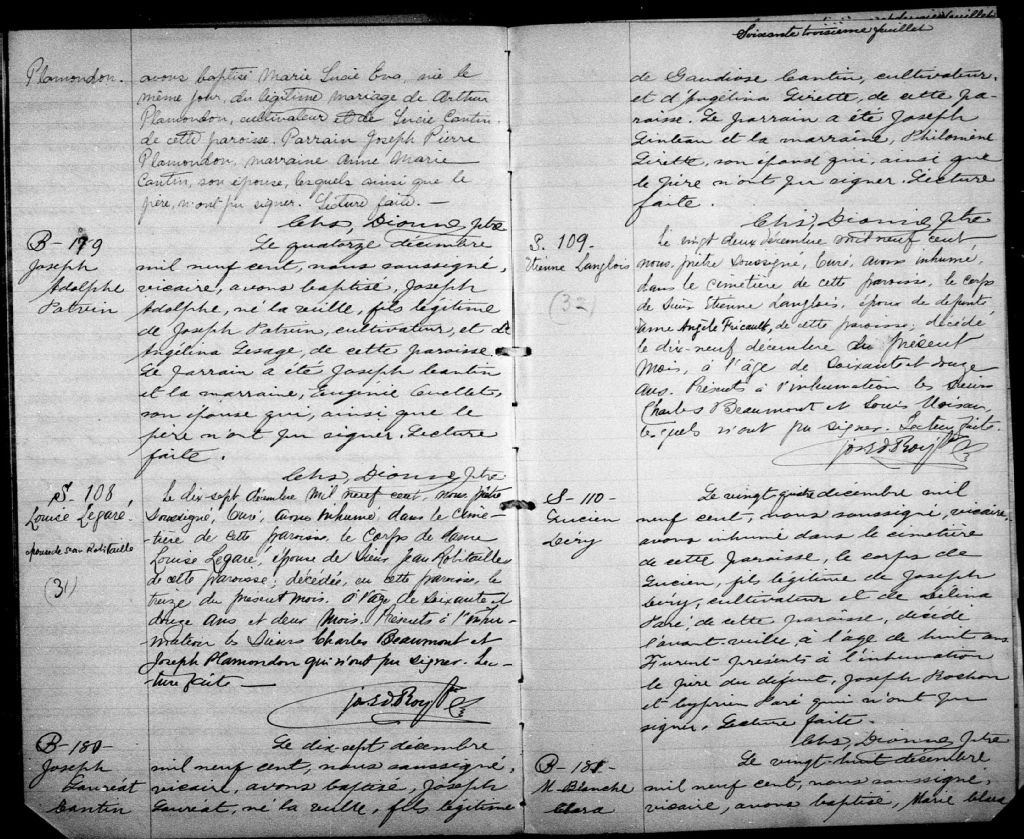 Plamondon.
avons baptisé Marie Lucie Eva, née le
même jour, du légitime mariage de Arthur
Plamondon, cultivateur et de Lucie Cantin
de cette paroisse. Parrain Joseph Pierre
Plamondon, marraine Anne Marie
Cantin, son épouse, lesquels ainsi que le
père, n'ont pu signer. Lecture faite. —
Chs, Dionne, ptre
B - 179
Joseph
Adolphe
Patrin
Le quatorze décembre
mil neuf cent, nous soussigné,
vicaire, avons baptisé, Joseph
Adolphe, né la veille, fils légitime
de Joseph Patrin, cultivateur, et d'
Angélina Lesage, de cette paroisse.
Le parrain a été Joseph Cantin
et la marraine, Eugénie Ouellette,
son épouse qui, ainsi que le
père n'ont pu signer. Lecture
faite.
Chs, Dionne, ptre
S - 108
Louise Legaré.
épouse de Jean Robitaille
(31)
Le dix-sept décembre mil neuf cent, nous prêtre
soussigné, Curé, avons inhumé, dans le cime-
tière de cette paroisse, le corps de dame
Louise Legaré, épouse de Sieur Jean Robitaille
de cette paroisse; décédée, en cette paroisse, le
treize du présent mois, à l'âge de soixante et
douze ans et deux mois. Présents à l'inhu-
mation les Sieurs Charles Beaumont et
Joseph Plamondon qui n'ont pu signer. Lec-
ture faite —
Jos d Roy Ptre C
B - 180
Joseph
Lauréat
Cantin
Le dix-sept décembre
mil neuf cent, nous soussigné,
vicaire, avons baptisé, Joseph
Lauréat, né la veille, fils légitime
Soixante troisième feuillet
de Gaudiose Cantin, cultivateur,
et d'Angélina Girette, de cette pa-
roisse. Le parrain a été Joseph
Linteau et la marraine, Philomène
Girette, son épouse qui, ainsi que
le père n'ont pu signer. Lecture
faite.
Chs, Dionne, ptre
S. 109 -
Etienne Langlois
(32)
Le vingt deux décembre mil neuf cent
nous, prêtre soussigné, Curé, avons inhumé,
dans le cimetière de cette paroisse, le corps
de Sieur Etienne Langlois, époux de défunte
dame Angèle Fricault, de cette paroisse; décédé
le dix-neuf décembre du présent
mois, à l'âge de soixante et douze
ans. Présents à l'inhumation les Sieurs
Charles Beaumont et Louis Moisan,
lesquels n'ont pu signer. Lecture faite.
Jos d Roy Ptre C
S - 110 -
Lucien
Léry
Le vingt quatre décembre mil
neuf cent, nous soussigné, vicaire,
avons inhumé dans le cimetière
de cette paroisse, le corps de
Lucien, fils légitime de Joseph
Léry, cultivateur et de Délina
Paré de cette paroisse, décédé
l'avant-veille à l'âge de huit ans
Furent présents à l'inhumation
le père du défunt, Joseph Rochon
et Cyprien Paré qui n'ont pu
signer, Lecture faite.
Chs, Dionne, ptre
B - 181 -
M. Blanche
Clara
Le vingt-huit décembre
mil neuf cent, nous soussigné,
vicaire, avons baptisé, Marie Clara